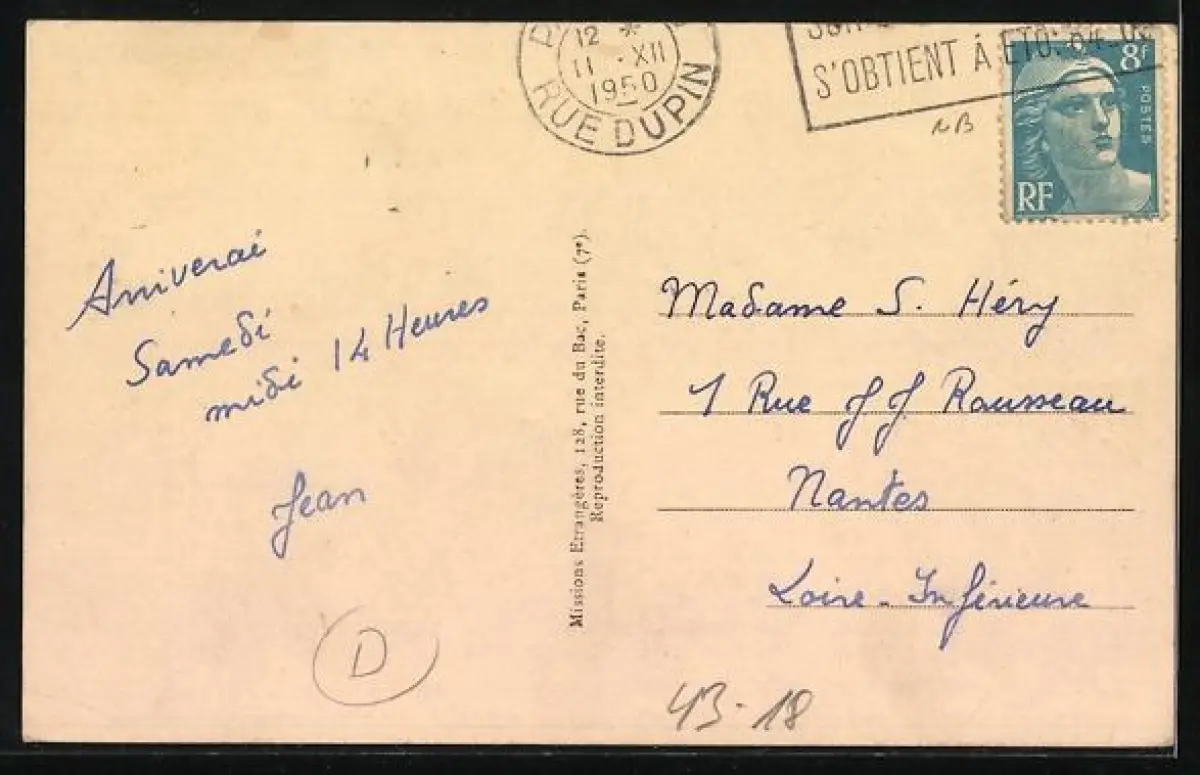 12 *
11 - XII
1950
RUE DUPIN
S'OBTIENT À ETO: 84-00
8f
POSTES
RF
NB
Arriverai
Samedi
midi 14 Heures
Jean
D
Missions Etrangères, 128, rue du Bac, Paris (7e).
Reproduction interdite.
Madame S. Héry
1 Rue J J Rousseau
Nantes
Loire-Inférieure
43-18